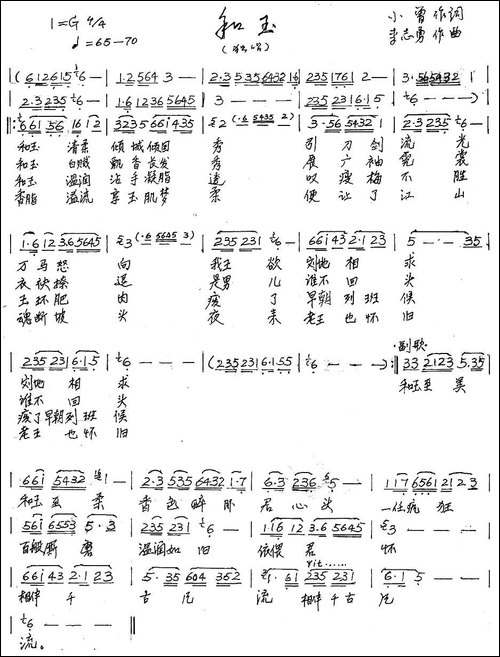 1=G 4/4
♩=65—70
和玉
(独唱)
小曾 作词
李志勇 作曲
(6 1 2 6 1 5 6 — | 1·2 5 6 4 3 — | 2·3 5 3 5 6 4 3 2 1 6 | 2 3 5 1 7 6 1 2 — | 3·5 6 5 4 3 2 1
2·3 2 3 5 6 — | 1·6 1 2 3 6 5 6 4 5 | 3 — — — | 2 3 5 2 3 1 6·1 5 | 6 — — —)
‖: 6 6 1 5 6 1 6 1 2 | 3 2 3 5 6 6 1 4 3 5 | 2 (·6 5 4 3 5 2) | 3·5 6 5 4 3 2 1 | 2·3 2 3 5 6 — |
和玉 清柔 倾城倾国 秀 引刀剑 流光
和玉 白贱 飘香长发 秀 展广袖 霓裳
和玉 温润 沾手凝脂 透 叹瘦梅 不胜
香脂 溢流 享玉肌梦 柔 便让了 江山
| 1·6 1 2 3·6 5 6 4 5 | 3 (·6 5 6 4 5 3) | 2 3 5 2 3 1 6 — | 6 6 1 4 3 2·1 2 3 | 5 — — 3 5 |
万马怒 向 我王 欲 刘地相 求
衣袂撩 逗 是男儿 谁不回 头
玉环肥 肉 疲了 早朝列班 候
魂断坡 头 夜未 老王也怀 旧
| 2 3 5 2 3 6·1 5 | 6 — — — | (2 3 5 2 3 1 6·1 5 5 | 6 — — —) :‖ 3 3 2 1 2 3 5·3 5 |
·副歌·
刘地 相求 和玉至美
谁不 回头
疲了早朝列班 候
老王 也怀 旧
| 6 6 1 5 4 3 2 1 — | 2·3 5 3 5 6 4 3 2 1·7 | 6·3 2 3 6 5 — | 1 1 7 6 5 6 1 2 1 2 3 |
和玉至柔 香色醉卧 君心头 一任疯狂
5 6 1 6 5 5 3 5·3 | 2 3 5 2 3 1 6 — | 1 1 6 1 2 3·6 5 6 4 5 | 3 — — — |
百般厮磨 温润如旧 依偎君 怀
rit......
6 6 1 4 3 2·1 2 3 | 5·3 5 6 0 4 3 5 2 | 1·6 1 2 3 5 2 3 1 | 6·1 5 — |
相伴千 古风 流 相伴千古 风
| 6 — — — ‖
流。